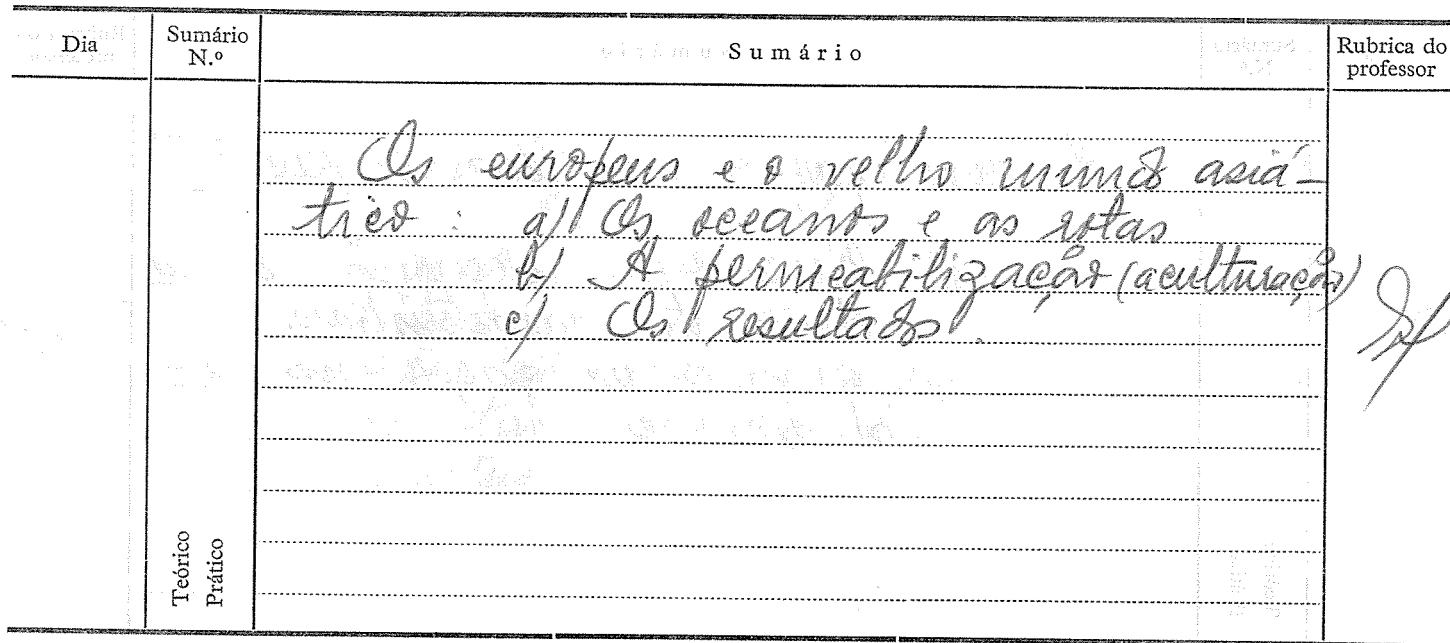 Dia
Sumário N.º
Sumário
Rubrica do professor
Os europeus e o velho mundo asiá-
tico: a) Os oceanos e as rotas
b) A permeabilização (aculturação)
c) Os resultados.
Teórico
Prático